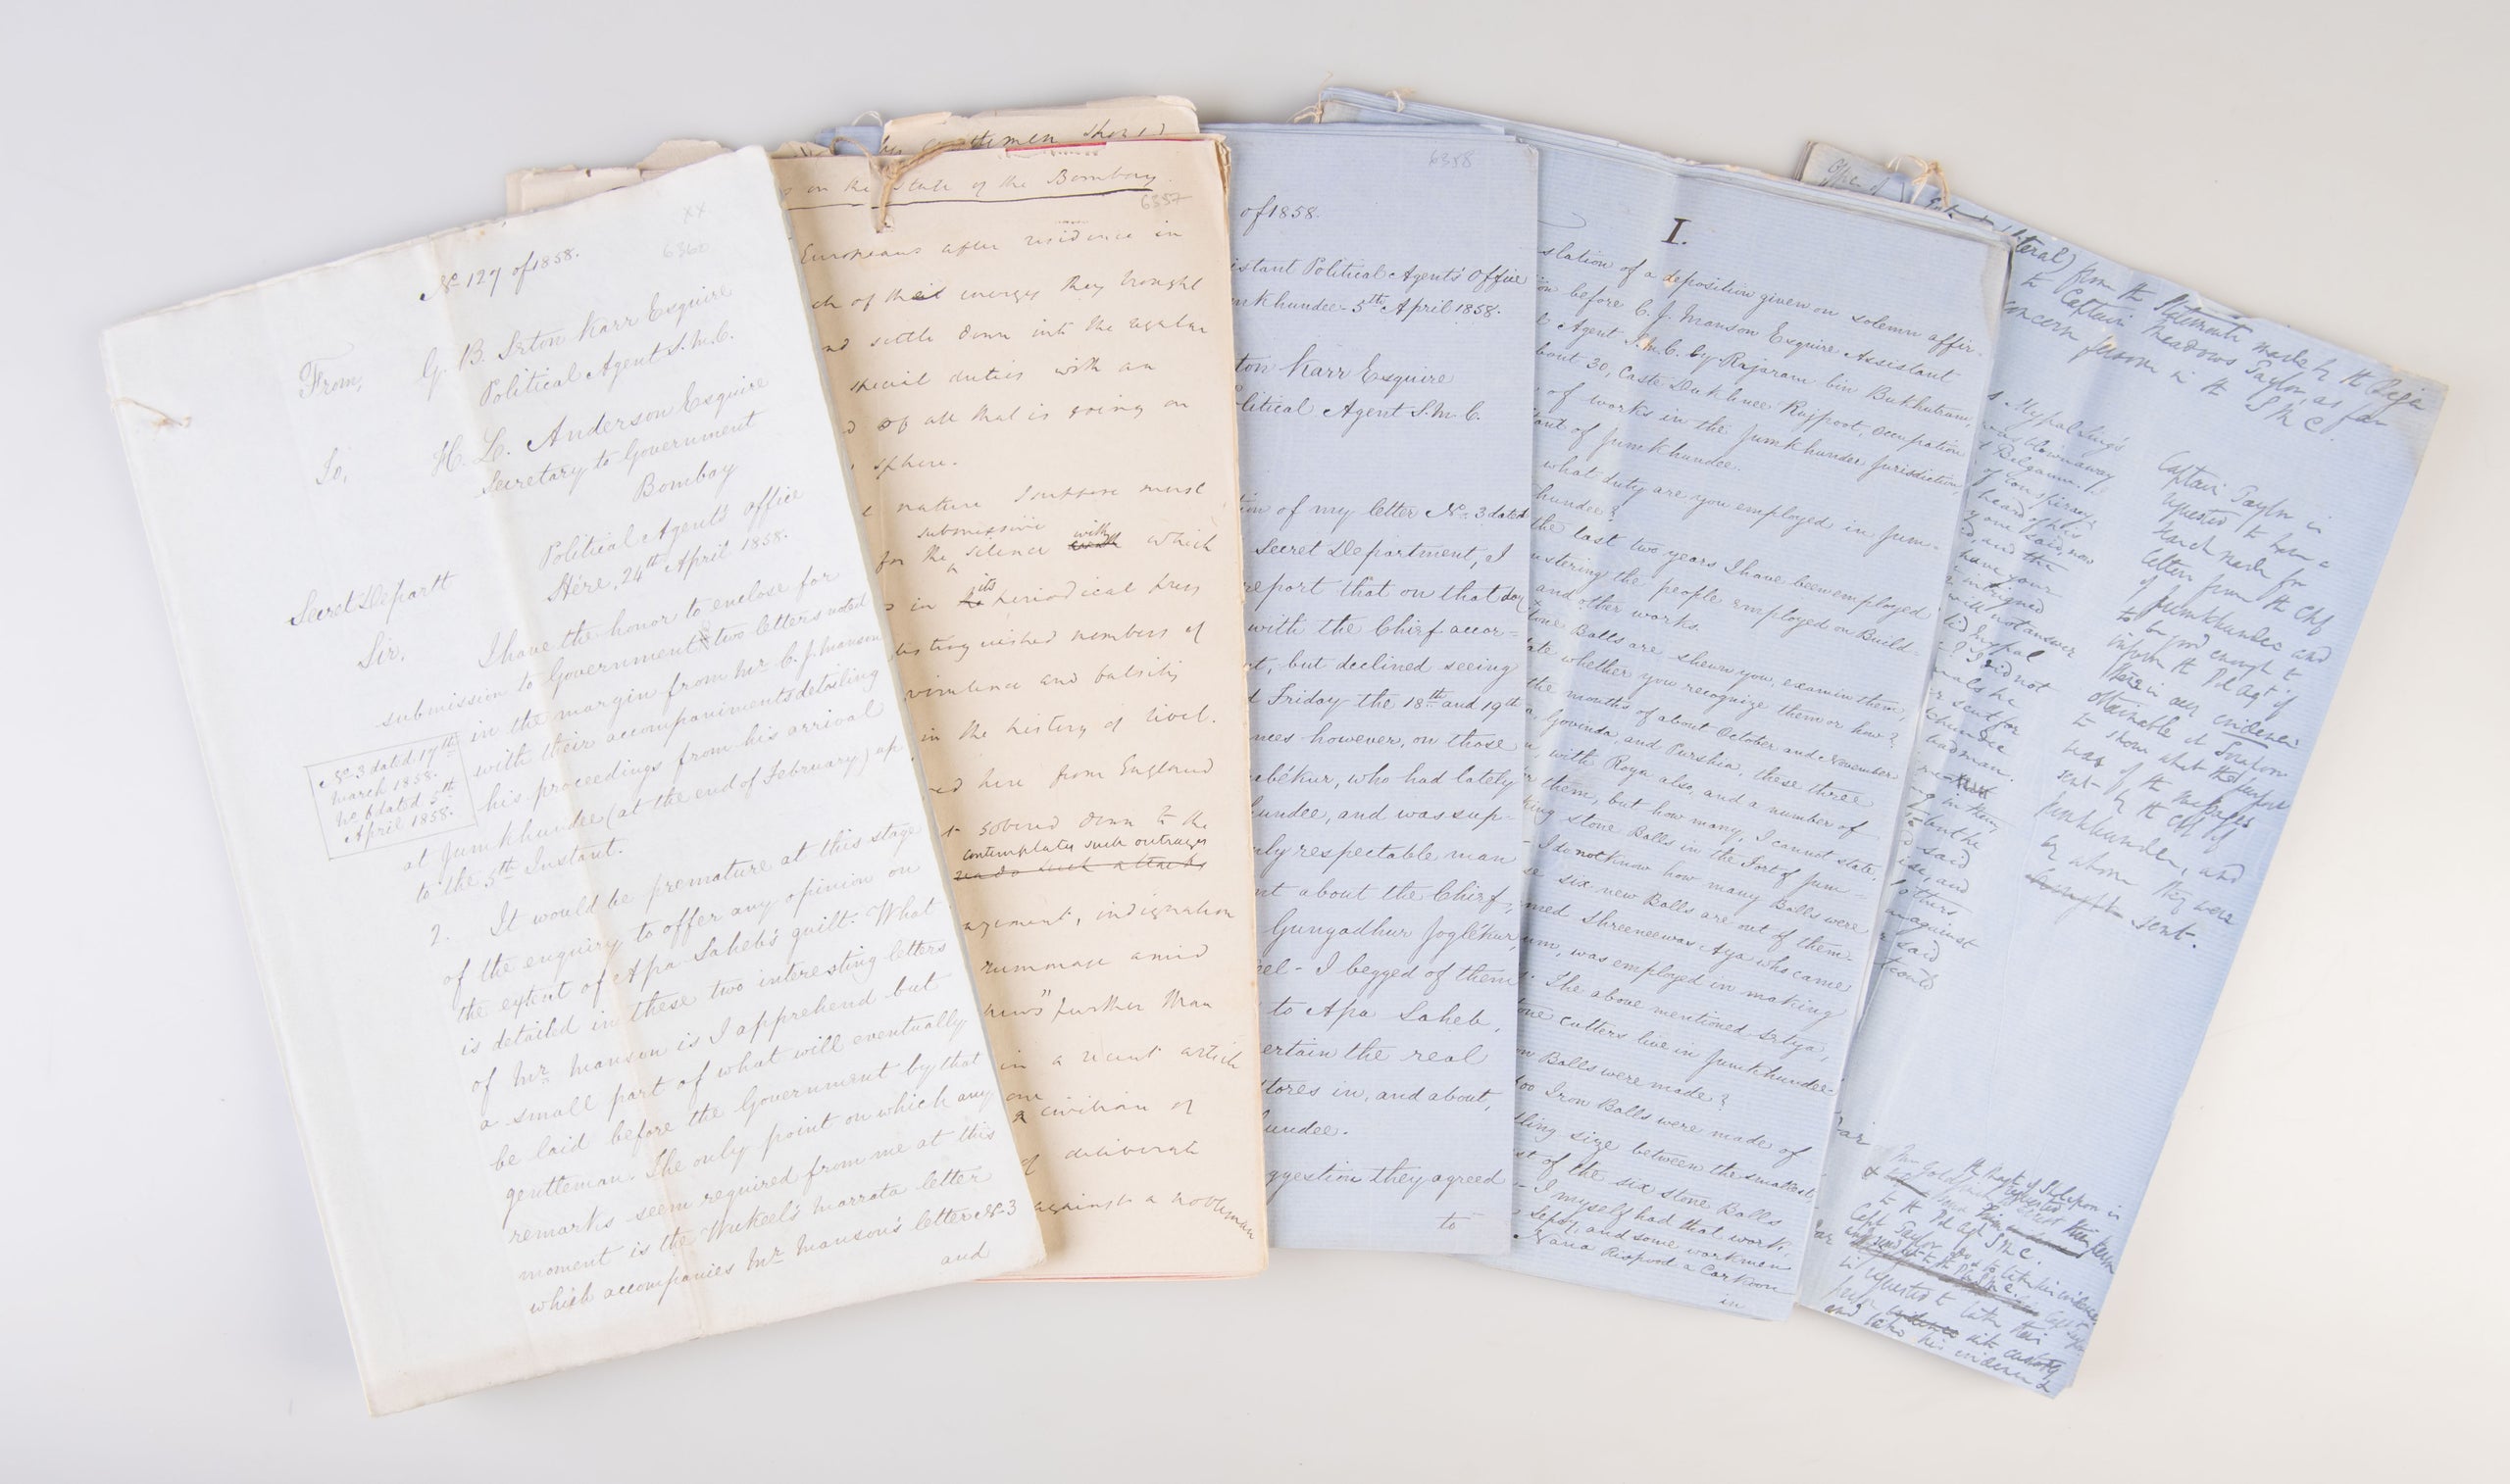 XX.
6360
No. 127 of 1858.
From,
G. B. Seton Karr Esquire
Political Agent S. M. C.
To,
H. L. Anderson Esquire
Secretary to Government
Bombay
Political Agent's Office
Here, 24th April 1858.
Secret Departt
Sir,
I have the honor to enclose for
submission to Government two letters noted
in the margin from Mr C. J. Manson
with their accompaniments detailing
his proceedings from his arrival
at Jumkhundee (at the end of February) up
to the 5th Instant.
No. 3 dated 17th
March 1858.
No. 6 dated 5th
April 1858.
2. It would be premature at this stage
of the enquiry to offer any opinion on
the extent of Apa Saheb's guilt. What
is detailed in these two interesting letters
of Mr Manson is I apprehend but
a small part of what will eventually
be laid before the Government by that
gentleman. The only point on which any
remarks seem required from me at this
moment is the Wukeel's Marrata letter
which accompanies Mr Manson's letter No. 3
and
gentlemen should
on the State of the Bombay
6357
Europeans after residence in
ch of their energy they brought
nd settle down into the regular
special duties with an
d of all that is going on
sphere.
nature I suppose must
submissive with
for the silence which
its
s in periodical press
distinguished members of
virulence and falsity
in the history of libel.
ed here from England
sobered down to the
contemplates such outrages
reads such attacks
agement, indignation
rummage amid
news" further than
in a recent article
one
a civilian of
of deliberate
against a nobleman
6358
of 1858.
istant Political Agent's Office
mkhundee 5th April 1858.
ton Karr Esquire
litical Agent S. M. C.
tion of my letter No. 3 dated
Secret Department, I
report that on that day
with the Chief accor=
t, but declined seeing
d Friday the 18th and 19th
nces however, on those
békur, who had lately
hundee, and was sup-
ly respectable man
nt about the Chief,
Gungadhur Joglékur,
eel - I begged of them
to Apa Saheb,
ertain the real
tores in, and about,
undee.
ggestion they agreed
to
I.
slation of a deposition given on solemn affir-
on before C. J. Manson Esquire Assistant
l Agent S. M. C. by Rajaram bin Bukhutram,
bout 30, Caste Dukhnee Rajpoot, Occupation
of works in the Jumkhundee Jurisdiction,
tant of Jumkhundee.
what duty are you employed in Jum-
hundee?
the last two years I have been employed
ustering the people employed on Build-
and other works.
tone Balls are shewn you, examine them,
ate whether you recognize them or how?
the months of about October and November
a, Govinda, and Purshia, these three
, with Roya also, and a number of
r them, but how many, I cannot state,
king stone Balls in the Fort of Jum-
- I do not know how many Balls were
se six new Balls are out of them.
med Shreeneewas Aya who came
um, was employed in making
. The above mentioned Setya,
one cutters live in Jumkhundee.
on Balls were made?
too Iron Balls were made of
dling size between the smallest,
st of the six stone Balls
- I myself had that work.
Sepoy, and some workmen
Nana Raspood a Carkoon
in
teral) from the Statement made by the
to Captain Meadows Taylor, as far
concern person in the S M C.
s Mypal Sing's
was blown away
Belgaum.
of conspiracy?
heard of his
y one said, now
and the
have your
intrigued
will not answer
did Mypal
? I did not
nals he
r sent for
khundee
badman.
in them,
but he
said
ise, and
others
against
r said
could
Captain Taylor is
requested to have a
search made for
letters from the Chf
of Jumkhundee and
to be good enough to
inform the Pol Agt if
there is any evidence
obtainable at Shorapoor
to show what the purport
was of the messages
sent by the Chf of
Jumkhundee, and
by whom they were
sent.
to the Pol Agt S M C.
Capt Taylor
is requested to take their
and take his evidence